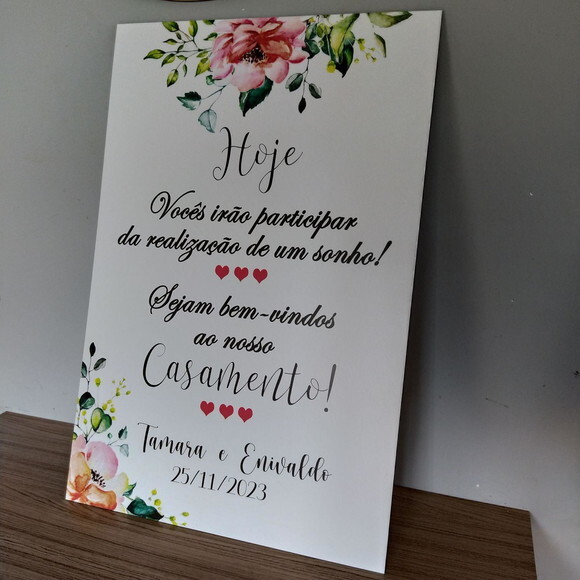 Hoje
Vocês irão participar
da realização de um sonho!
Sejam bem-vindos
ao nosso
Casamento!
Tamara e Enivaldo
25/11/2023